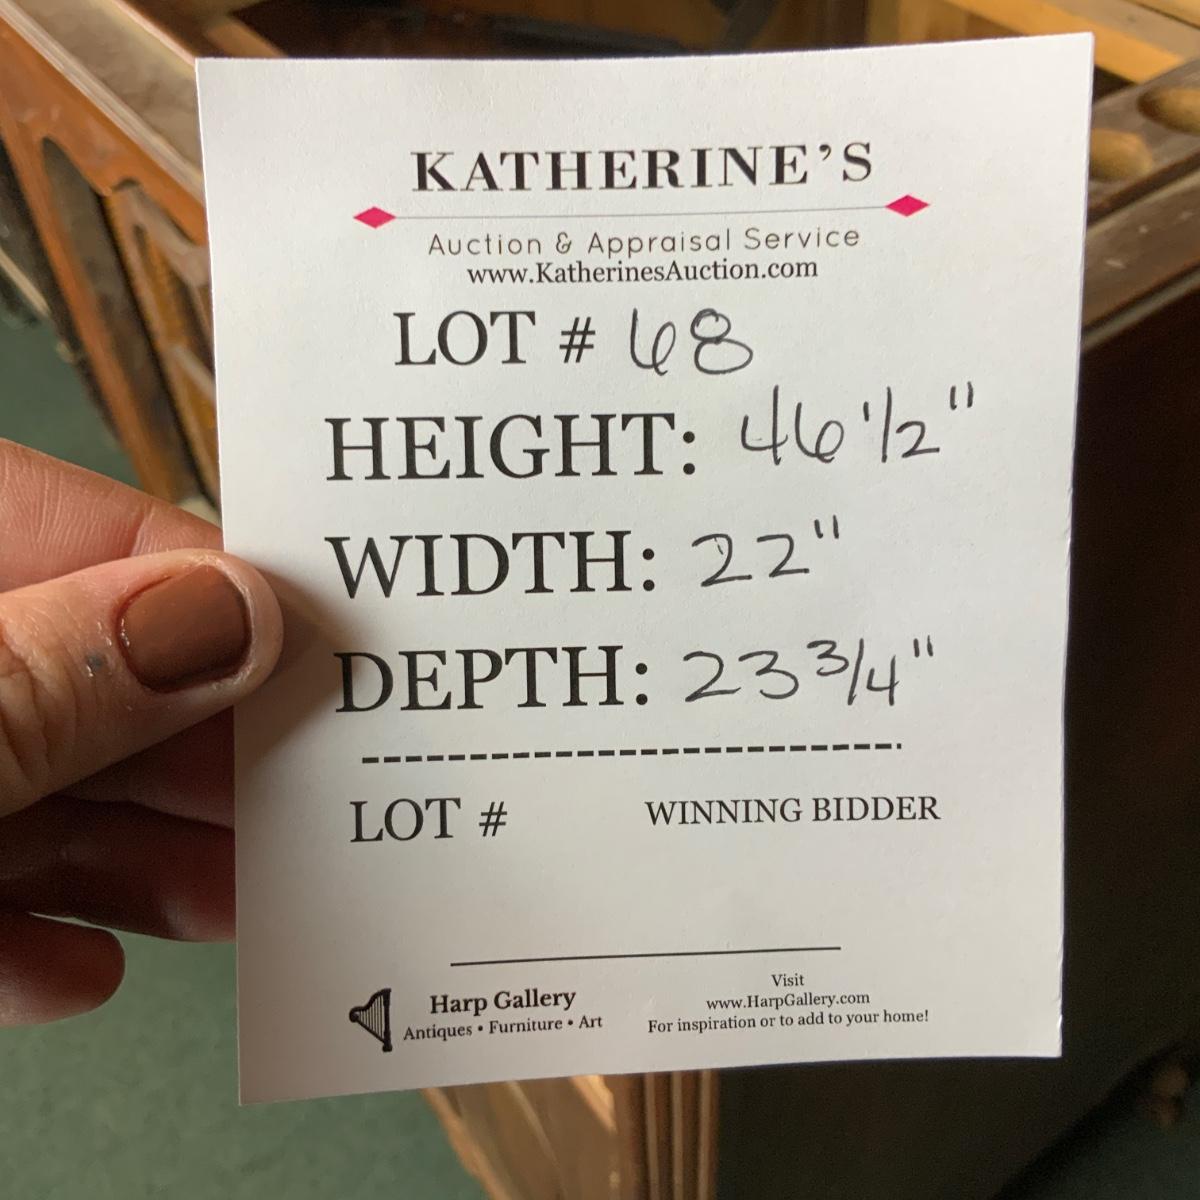 KATHERINE'S
Auction & Appraisal Service
www.KatherinesAuction.com
LOT # 68
HEIGHT: 46 1/2"
WIDTH: 22"
DEPTH: 23 3/4"
LOT # WINNING BIDDER
Harp Gallery
Antiques • Furniture • Art
Visit
www.HarpGallery.com
For inspiration or to add to your home!